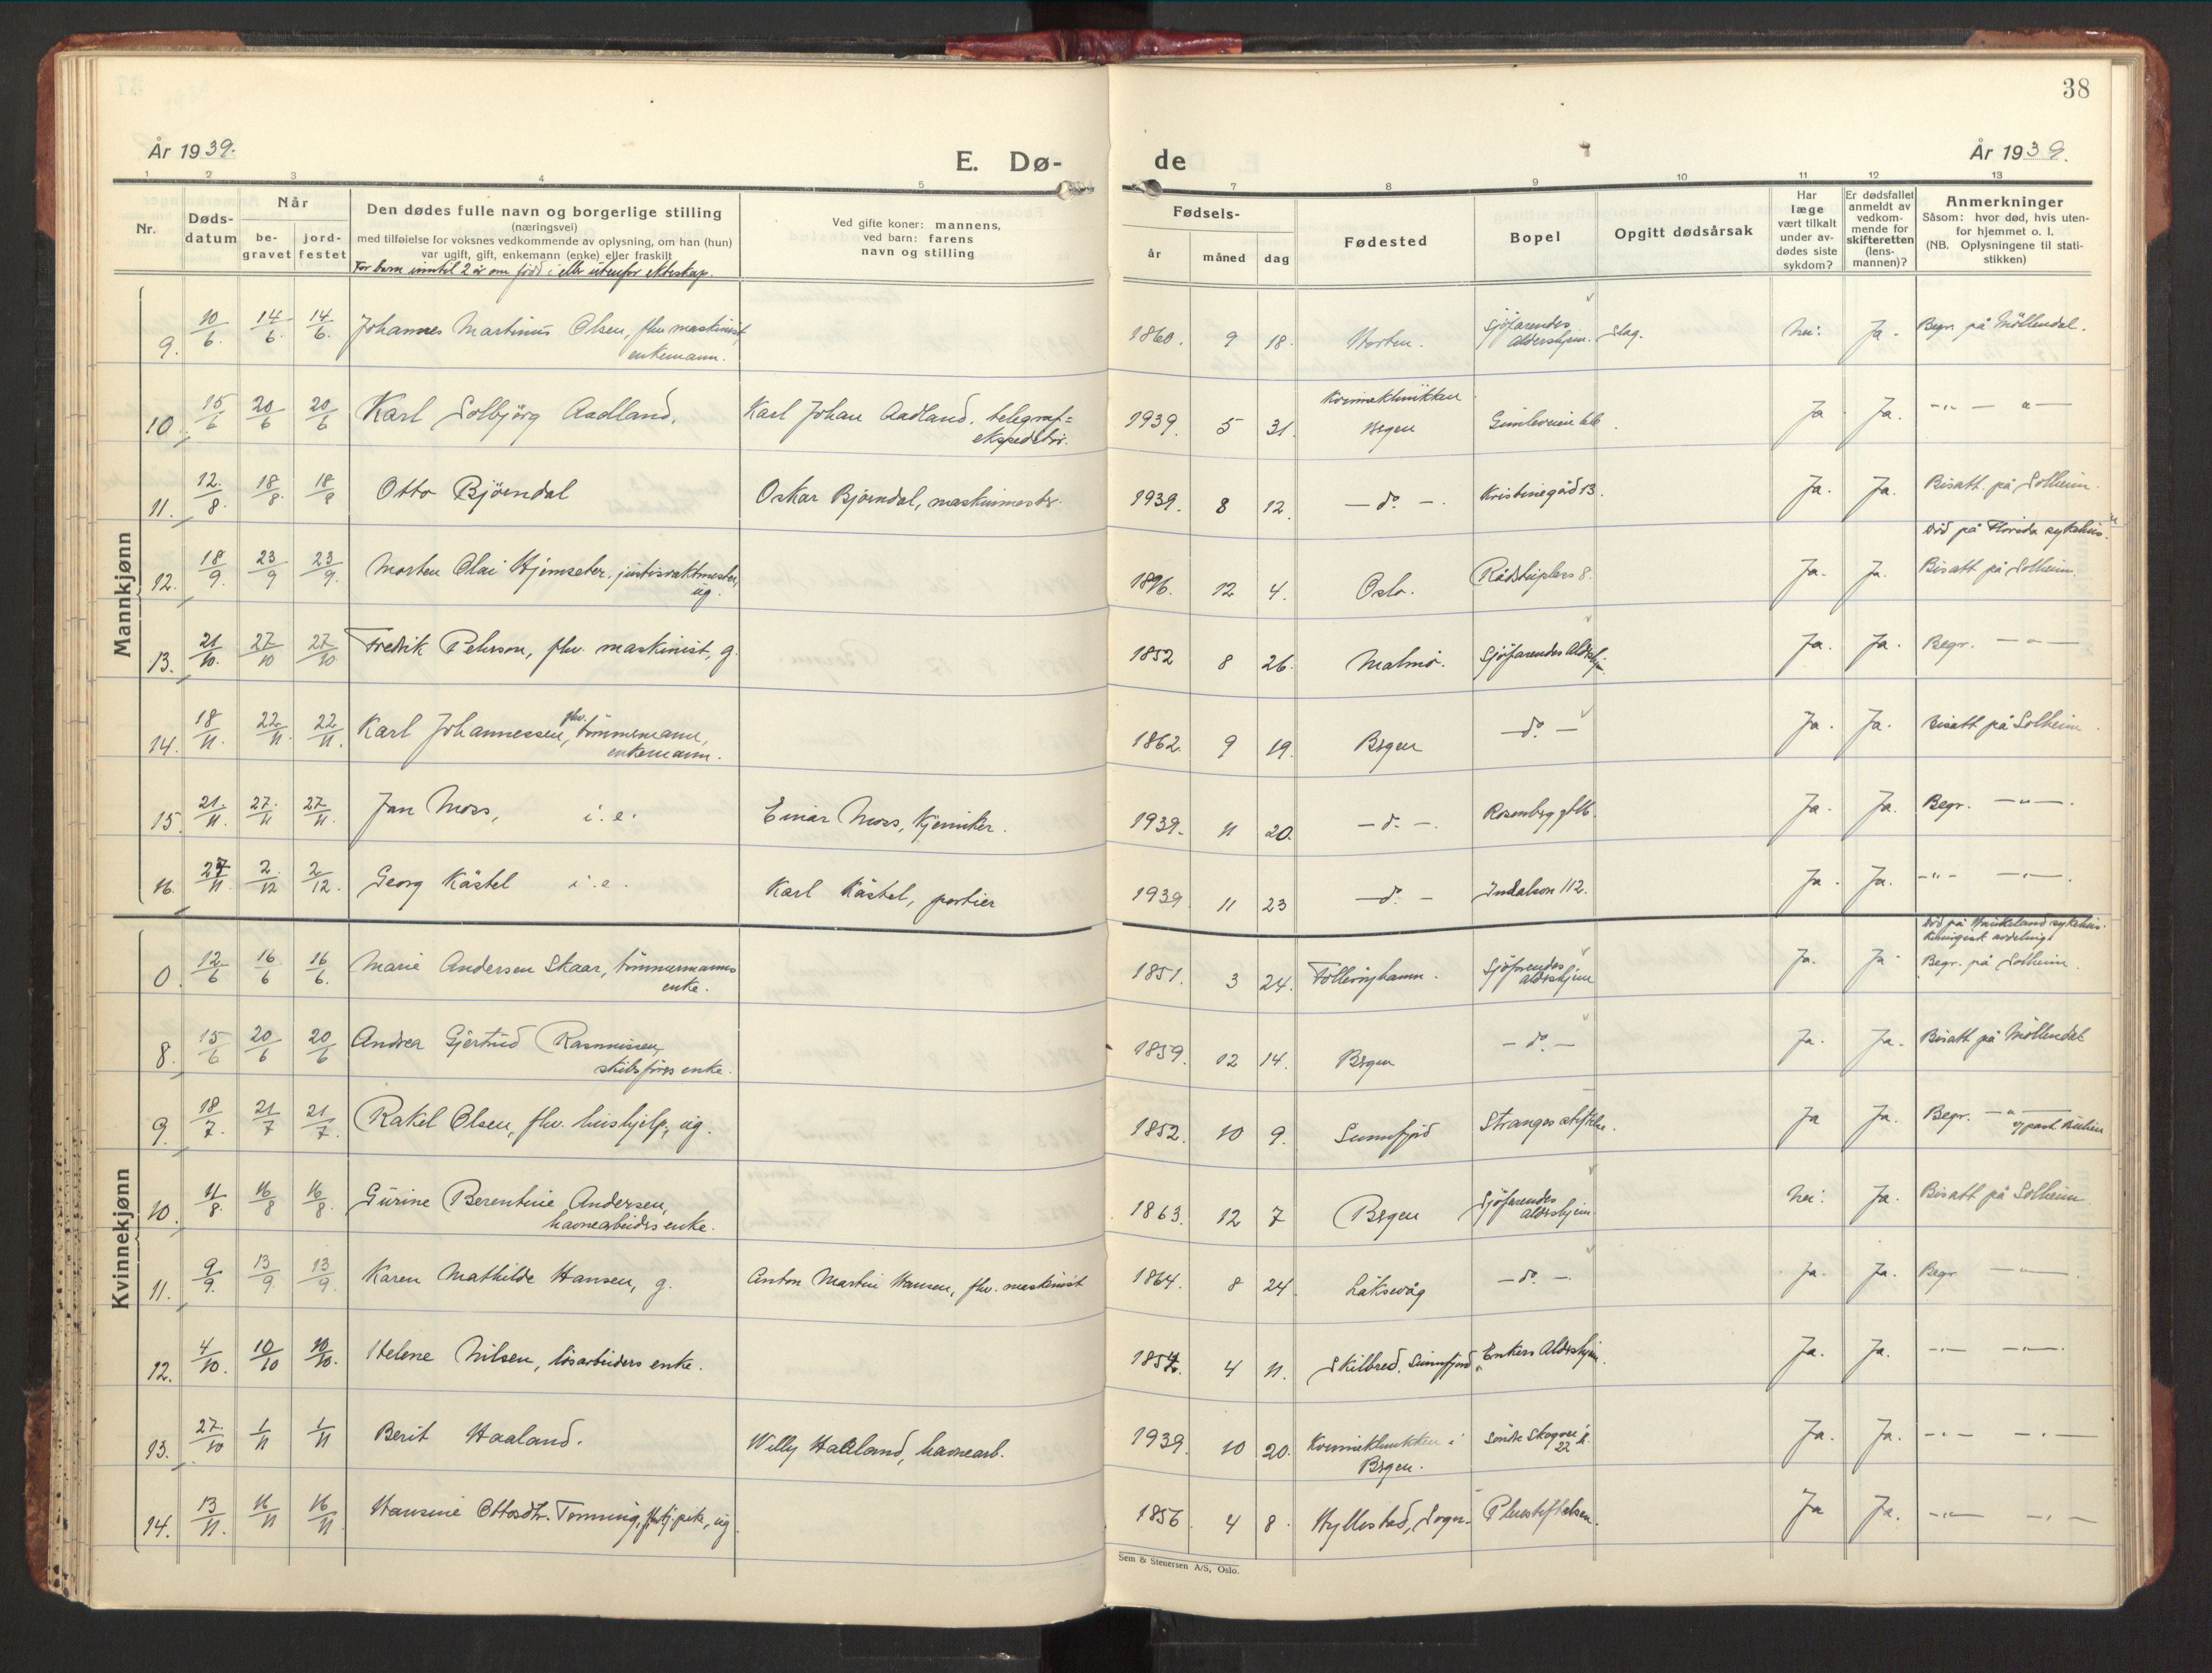 38
År 1939.
E. Dø-
de
År 1939.
1 2 3 4 5 7 8 9 10 11 12 13
Nr.
Døds-
datum
Når
be-
gravet
jord-
festet
Den dødes fulle navn og borgerlige stilling
(næringsvei)
med tilføielse for voksnes vedkommende av oplysning, om han (hun)
var ugift, gift, enkemann (enke) eller fraskilt
For barn inntil 2 år om født i eller utenfor ekteskap.
Ved gifte koner: mannens,
ved barn: farens
navn og stilling
Fødsels-
år måned dag
Fødested
Bopel
Opgitt dødsårsak
Har
læge
vært tilkalt
under av-
dødes siste
sykdom?
Er dødsfallet
anmeldt av
vedkom-
mende for
skifteretten
(lens-
mannen)?
Anmerkninger
Såsom: hvor død, hvis uten-
for hjemmet o. l.
(NB. Oplysningene til stati-
stikken)
Mannkjønn
9. 10/6. 14/6. 14/6. Johannes Martinus Olsen, fhv. maskinist,
enkemann.
1860. 9 18. Horten. Sjöfarendes
Aldershjem. Slag. Nei. Ja. Begr. på Möllendal.
10. 15/6 20/6 20/6 Karl Solbjörg Aadland. Karl Johan Aadland, telegraf=
ekspeditör.
1939. 5 31. Kvinneklinikken
Bergen Gimleveien Ja Ja. -"- - " -
11. 12./8. 18/8. 18/8 Otto Björndal Oskar Björndal, maskinmester.
1939. 8 12. - do. -. Kristinegård 13. Ja. Ja. Bisatt. på Solheim.
12. 18/9. 23/9 23/9. Morten Olai Hjemseter, justisvaktmester,
ug.
1896. 12 4. Oslo. Rådstuplass 8. Ja. Ja. Död på Florida sykehus.
Bisatt på Solheim.
13. 21/10. 27/10 27/10 Fredrik Pehrson, fhv. maskinist, g.
1852 8 26. Malmö. Sjöfarendes Aldershj. Ja. Ja. Begr. - " -
14. 18/11. 22/11. 22/11. Karl Johannessen, fhv. tömmermann,
enkemann.
1862. 9 19. Bergen - do. - Ja. Ja. Bisatt på Solheim.
15. 21./11. 27./11 27./11. Jan Moss, i. e. Einar Moss, Kjemiker.
1939. 11 20. - do. -. Rosenberggt. Ja. Ja. Begr. - " -.
16. 27/11. 2./12 2/12. Georg Kästel i. e. Karl Kästel, portier
1939. 11 23 - do. - Indalson 112. Ja. Ja. -"- - " -.
Kvinnekjønn
0. 12./6 16/6 16/6. Marie Andersen Skaar, tömmermanns
enke.
1851. 3 24. Sjöfarendes
aldershjem Ja. Ja Död på Haukeland sykehus.
Kirurgisk avdeling.
Begr. på Solheim.
8. 15/6 20/6 20/6 Andrea Gjertrud Rasmussen,
skibsförers enke.
1859. 12 14. Bergen - do. - Ja. Ja. Bisatt på Möllendal
9. 18/7. 21/7 21/7. Rakel Olsen, fhv. hushjelp, ug.
1852. 10 9. Sunnfjord Stranges stiftelse. Ja Ja. Begr. - " -
10. 11/8. 16/8 16/8. Gurine Berentine Andersen,
havnearbeiders enke.
1863. 12 7 Bergen Sjöfarendes
aldershjem. Nei. Ja. Bisatt på Solheim
11. 9/9. 13/9. 13/9. Karen Mathilde Hansen, g. Anton Martin Hansen, fhv. maskinist
1864. 8 24. Laksevåg - do. -. Ja. Ja. Begr - " -
12. 4/10. 10/10 10/10. Helene Nilsen, lösarbeiders enke.
1854. 4 11. Skilbred, Sunnfjord. Enkers Aldershjem. Ja. Ja. -"- -"-.
13. 27./10 1/11 1/11 Berit Haaland. Willy Haaland, havnearb.
1939. 10 20. Kvinneklinikken i
Bergen. Söndre Skogvei
22 Ja. Ja. -"- - " -
14. 13/11. 16/11 16/11 Hansine Ottosdtr. Tomning, fhv. tj. pike, ug
1856 4 8. Hyllestad, Sogn. Pleiestiftelsen. Ja Ja. -"- -"-
Sem & Stenersen A/S, Oslo.